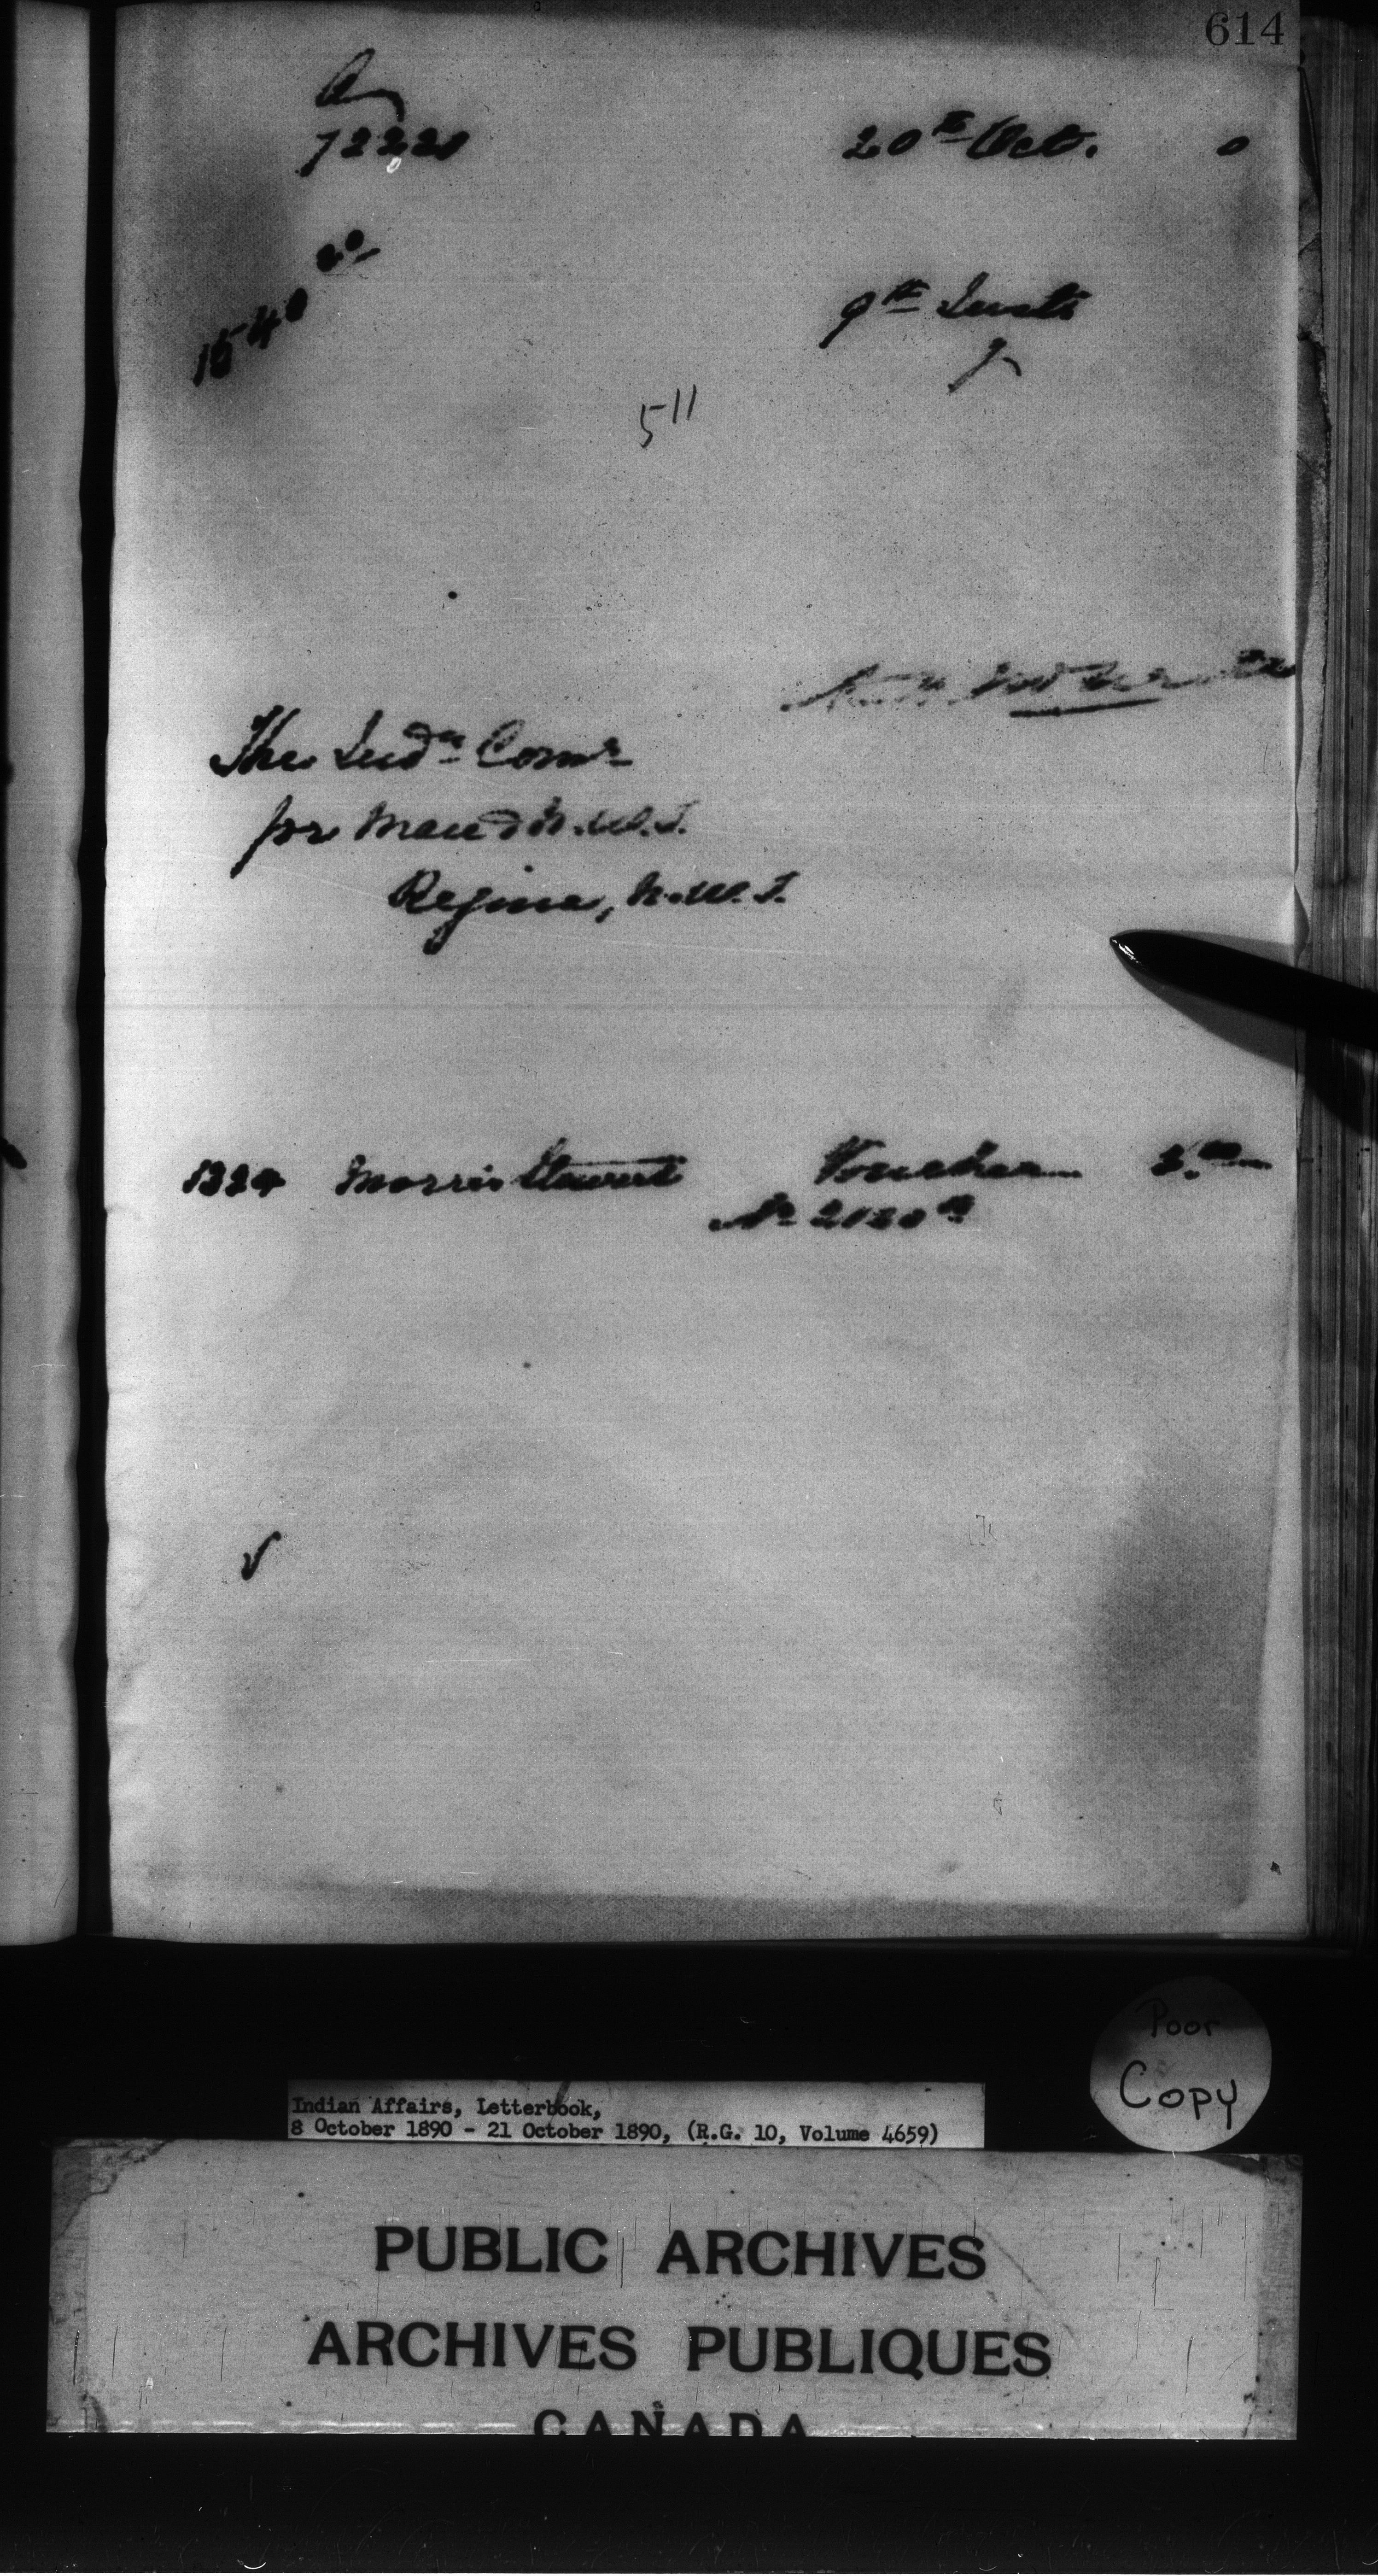 614
72221
20th Oct. 0
9th Inst
511
The Indn Comr
for Man & N.W.T.
Regina, N.W.T.
1324 Morris Stewart Voucher 2.00
No 2120
Poor
Copy
Indian Affairs, Letterbook,
8 October 1890 - 21 October 1890, (R.G. 10, Volume 4659)
PUBLIC ARCHIVES
ARCHIVES PUBLIQUES
CANADA